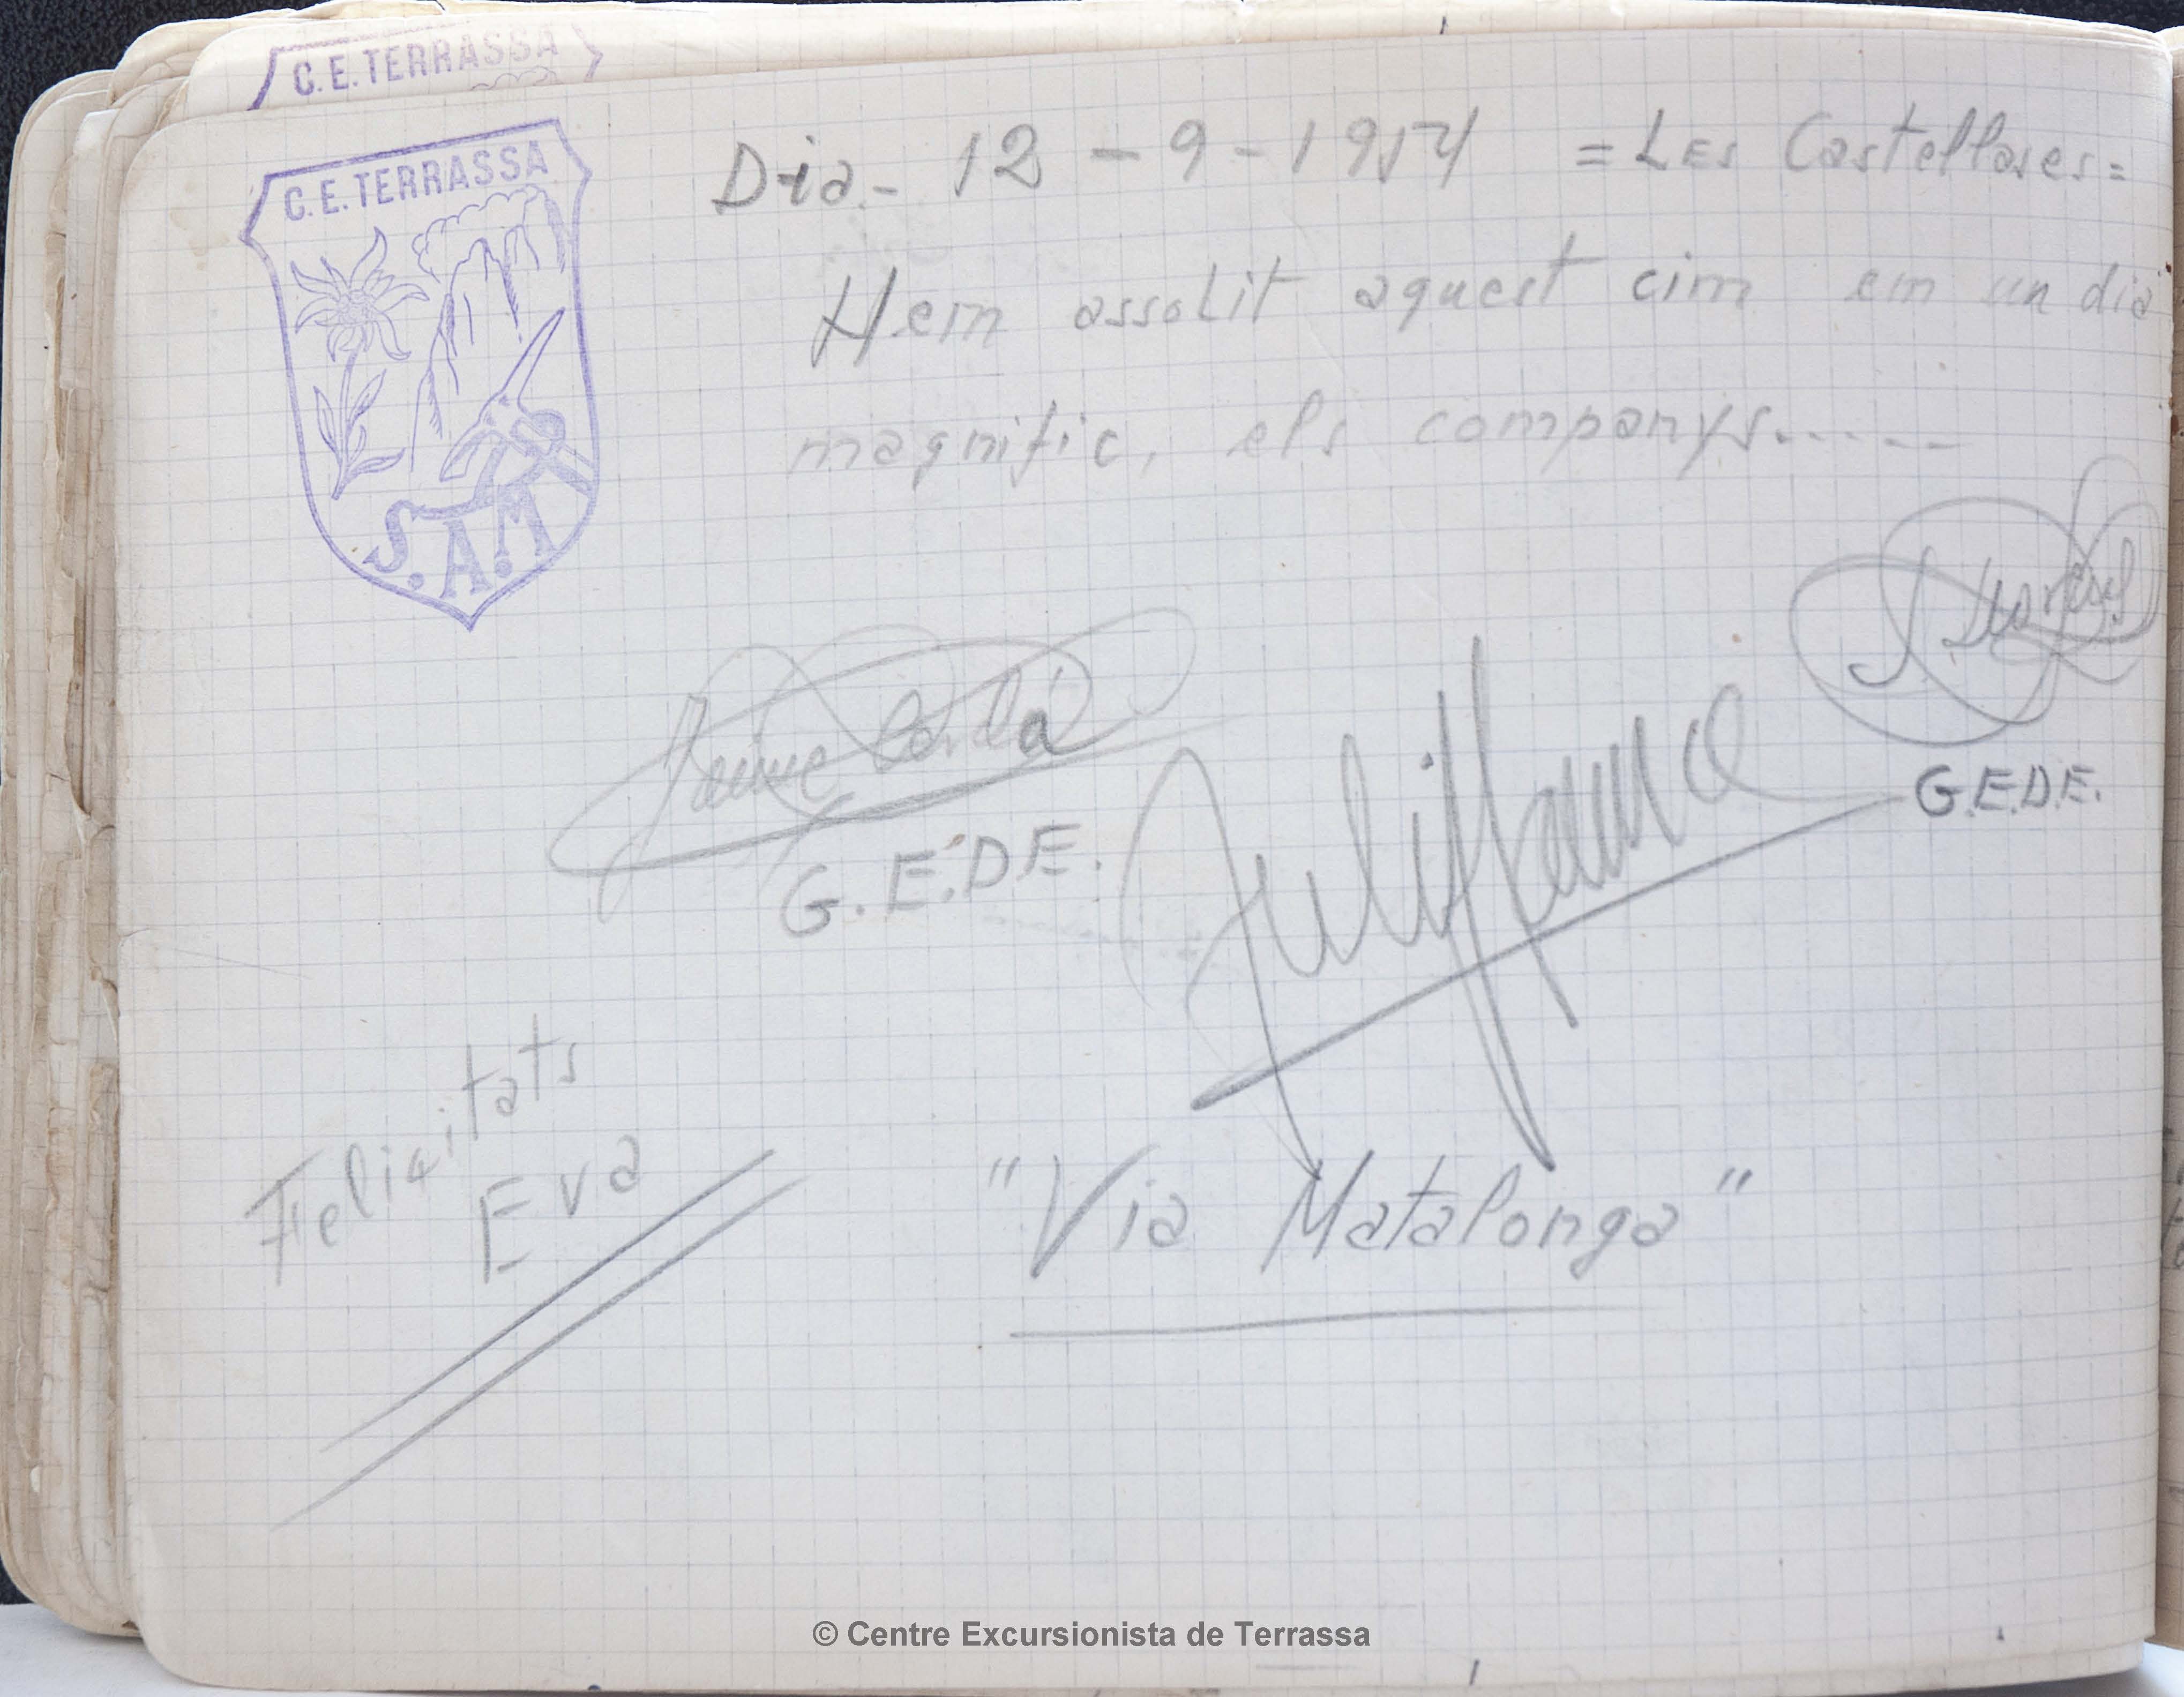 C.E.TERRASSA
C.E.TERRASSA
S.A.M
Dia.- 12-9-1954 =Les Castellases=
Hem assolit aquest cim em un dia
magnific, els companys.----
Jaime
G.E.D.E.
G.E.D.E.
Felicitats
Eva
"Via Matalonga"
© Centre Excursionista de Terrassa